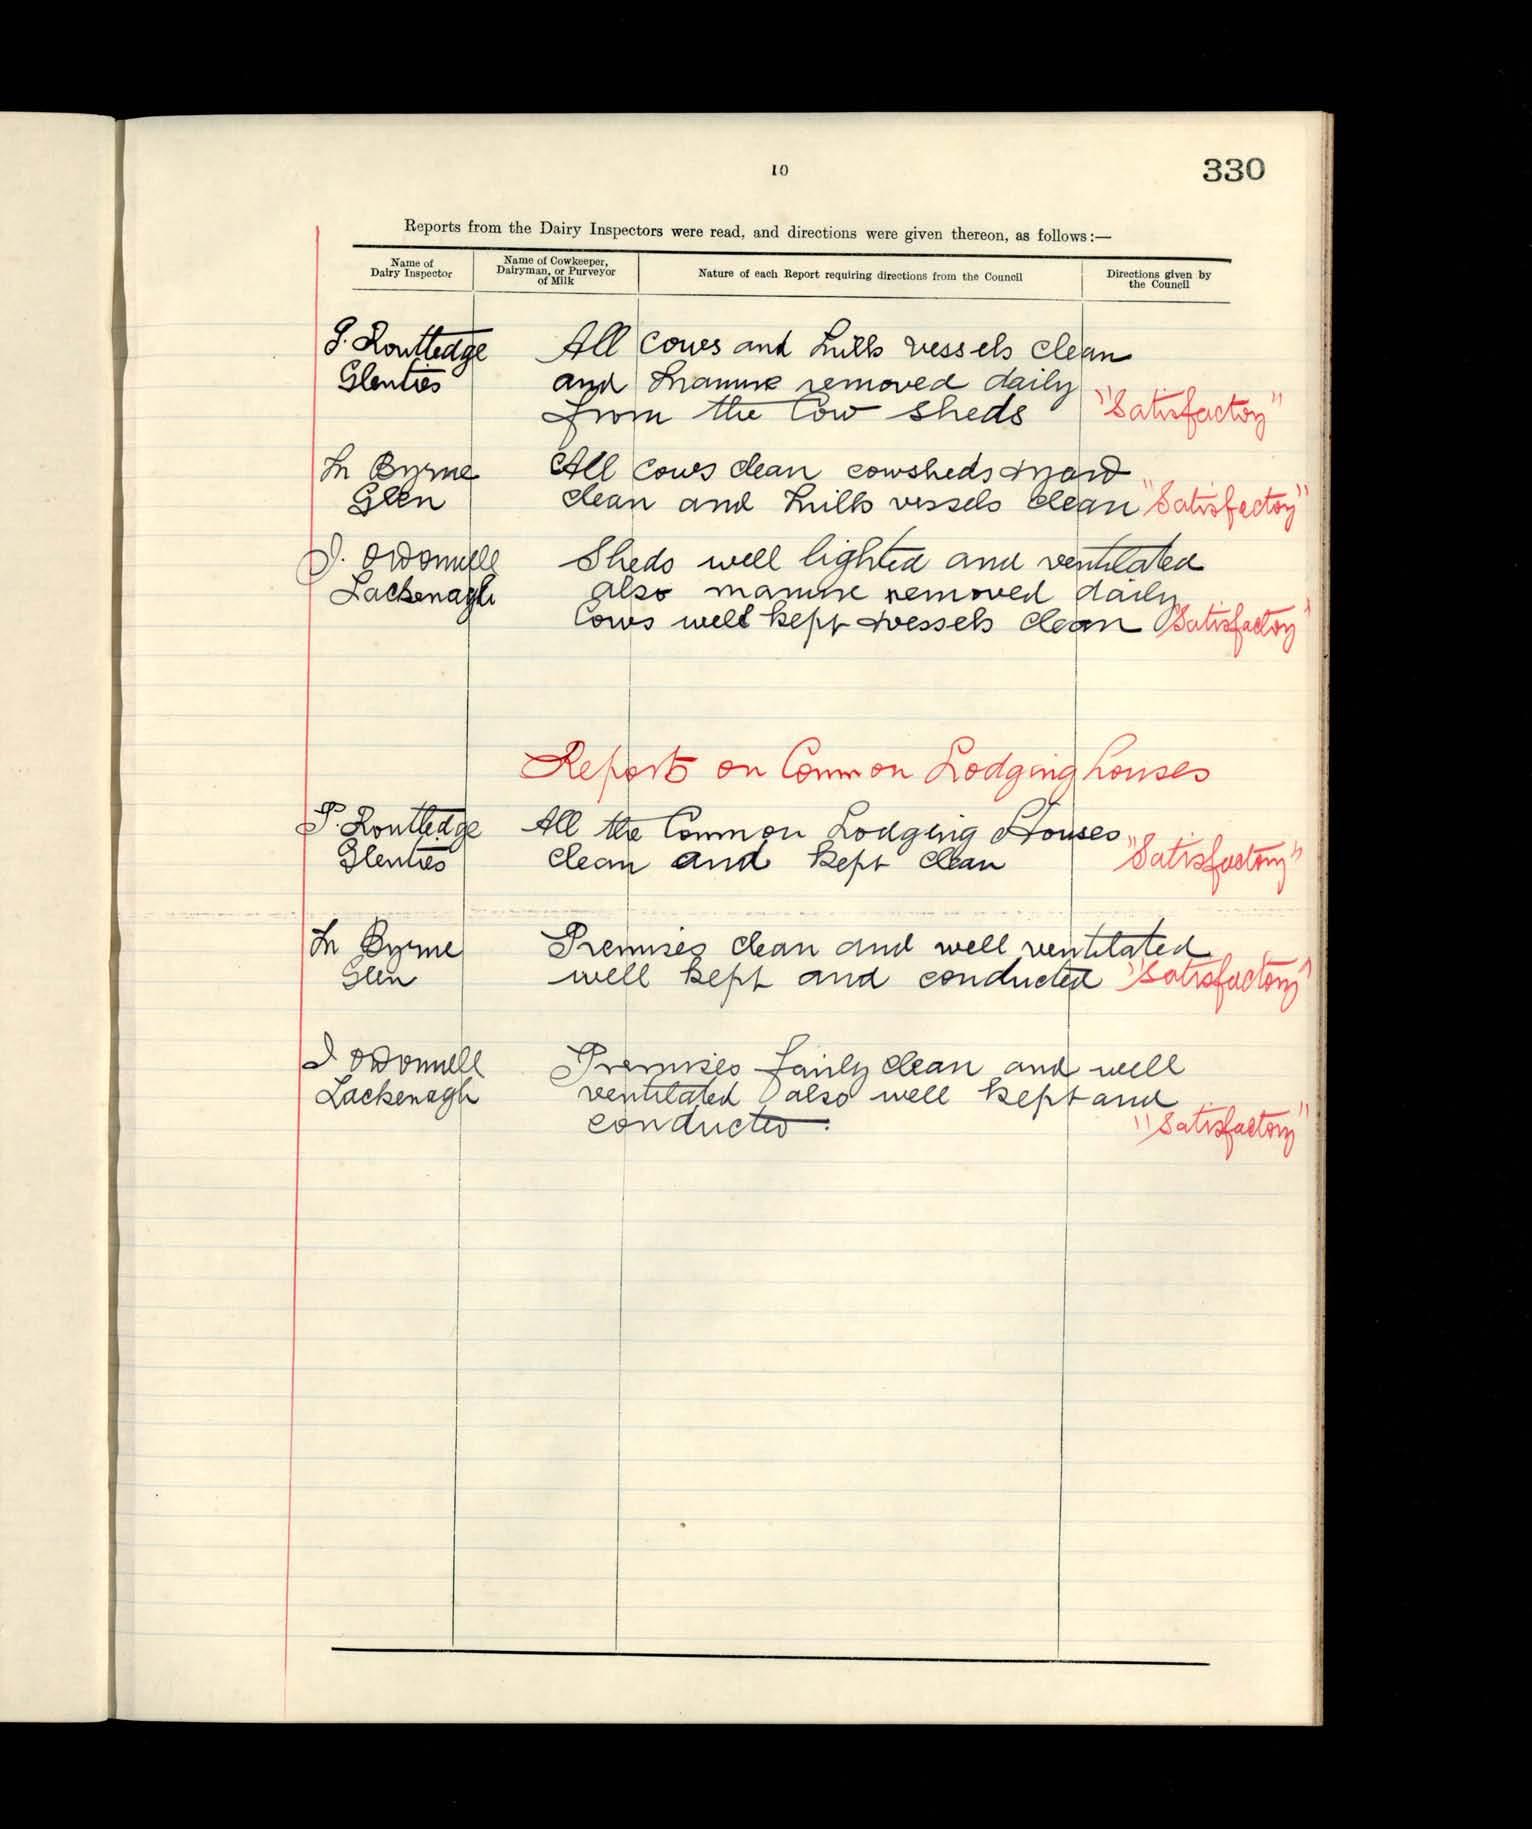 10
330
Reports from the Dairy Inspectors were read, and directions were given thereon, as follows:—
Name of Dairy Inspector
Name of Cowkeeper, Dairyman, or Purveyor of Milk
Nature of each Report requiring directions from the Council
Directions given by the Council
Routledge All cows and milk vessels clean
Glenties and manure removed daily
from the Cow sheds "Satisfactory"
M Byrne All cows clean cowsheds & yard
Glen clean and milk vessels clean "Satisfactory"
J. O'Donnell Sheds well lighted and ventilated
Lackenagh also manure removed daily
Cows well kept & vessels clean "Satisfactory"
Reports on Common Lodging houses
Routledge All the Common Lodging Houses
Glenties clean and kept clean "Satisfactory"
M Byrne Premises clean and well ventilated
Glen well kept and conducted "Satisfactory"
J O'Donnell Premises fairly clean and well
Lackenagh ventilated also well kept and
conducted. "Satisfactory"